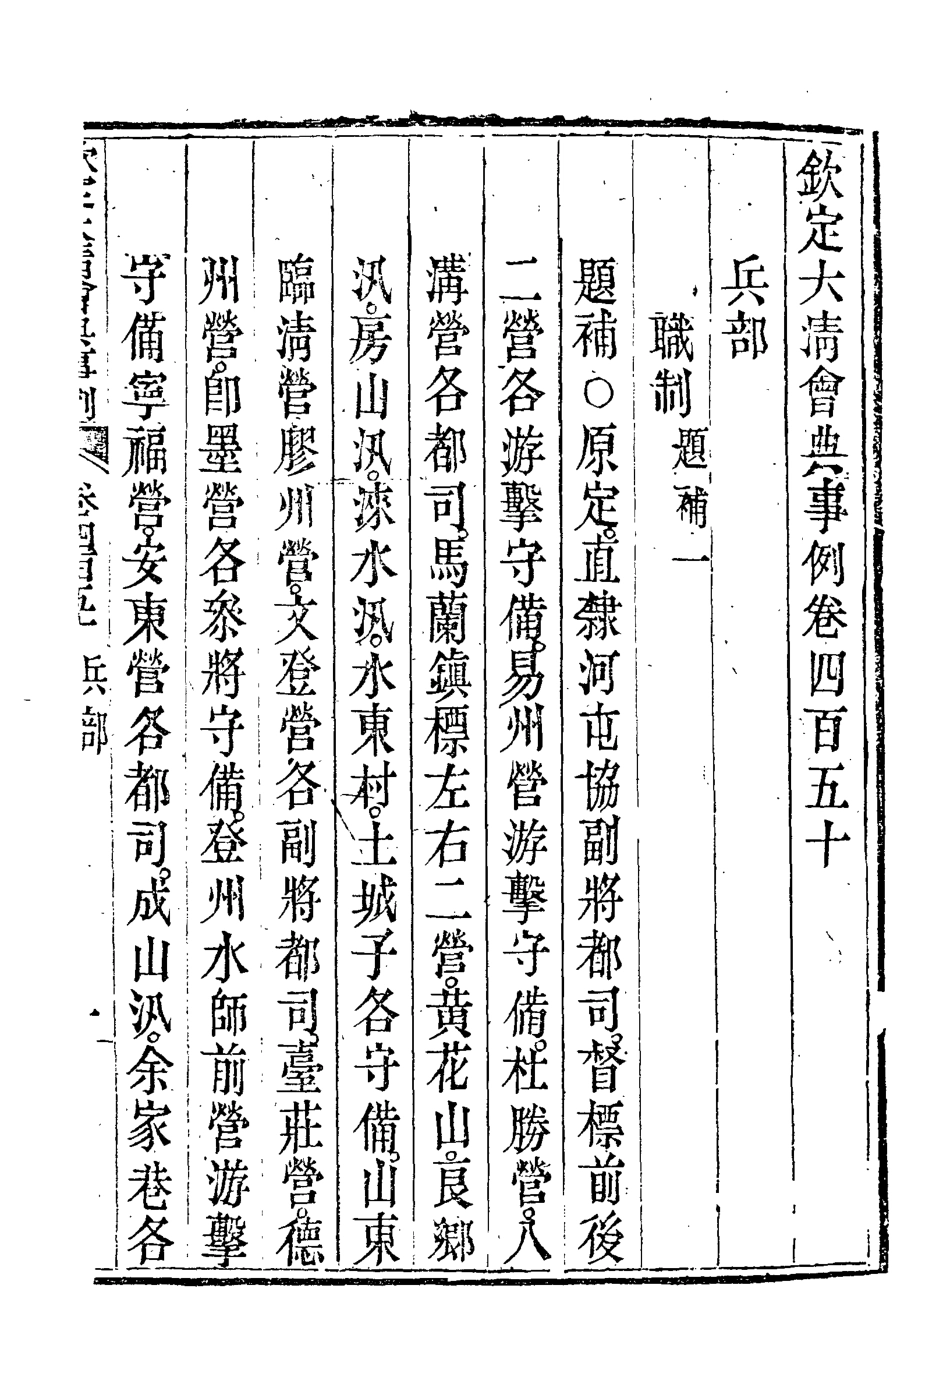 欽定大淸會典事例卷四百五十
兵部
職制題補一
題補○原定。直隸河屯協副將都司。督標前後
二營各游擊守備。易州營游擊守備。杜勝營。八
溝營各都司。馬蘭鎮標左右二營。黃花山。良鄉
汛。房山汛。淶水汛。水東村。土城子各守備。山東
臨淸營。膠州營。文登營各副將都司。臺莊營。德
州營。卽墨營各叅將守備。登州水師前營游擊
守備。寧福營。安東營各都司。成山汛。余家巷各
欽定大清會典事例 卷四百五十 兵部 一